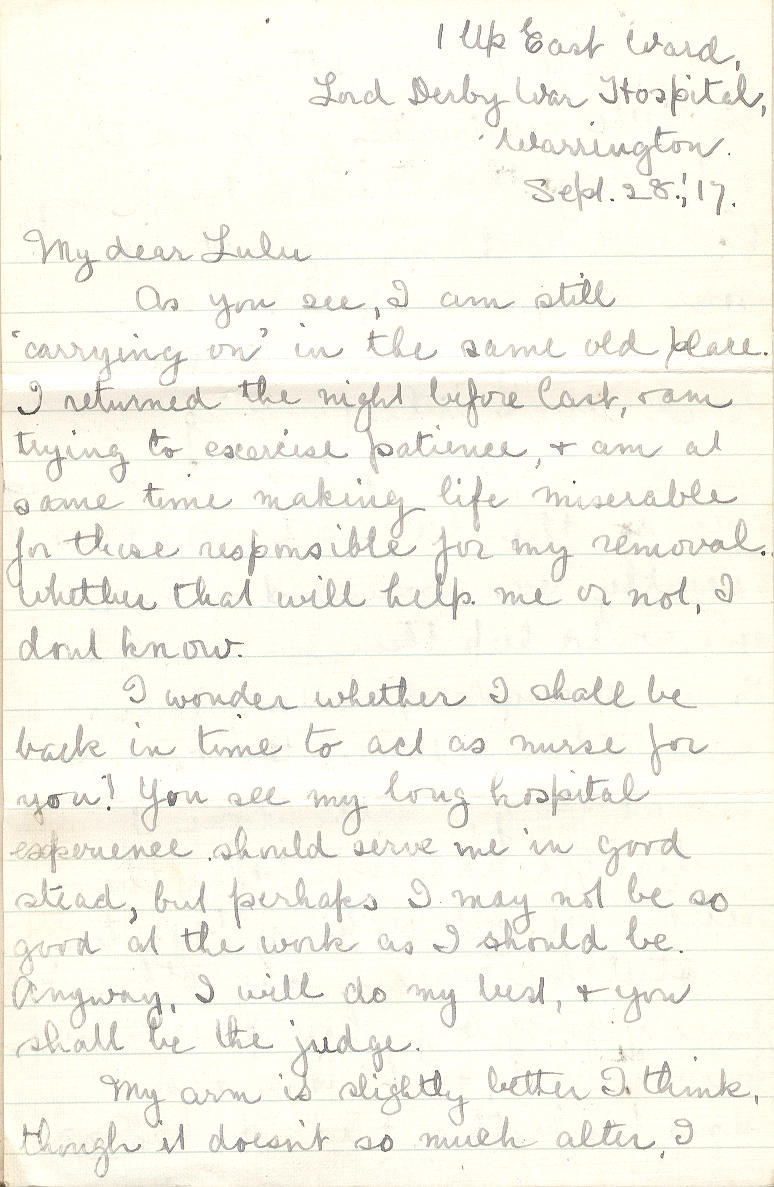 1 Up East Ward,
Lord Derby War Hospital,
Warrington.
Sept. 28.,'17.
My dear Lulu
As you see, I am still
'carrying on' in the same old place.
I returned the night before last, & am
trying to exercise patience, & am at
same time making life miserable
for those responsible for my removal.
Whether that will help me or not, I
dont know.
I wonder whether I shall be
back in time to act as nurse for
you! You see my long hospital
experience should serve me in good
stead, but perhaps I may not be so
good at the work as I should be.
Anyway, I will do my best, & you
shall be the judge.
My arm is slightly better I think,
though it doesn't so much alter, I